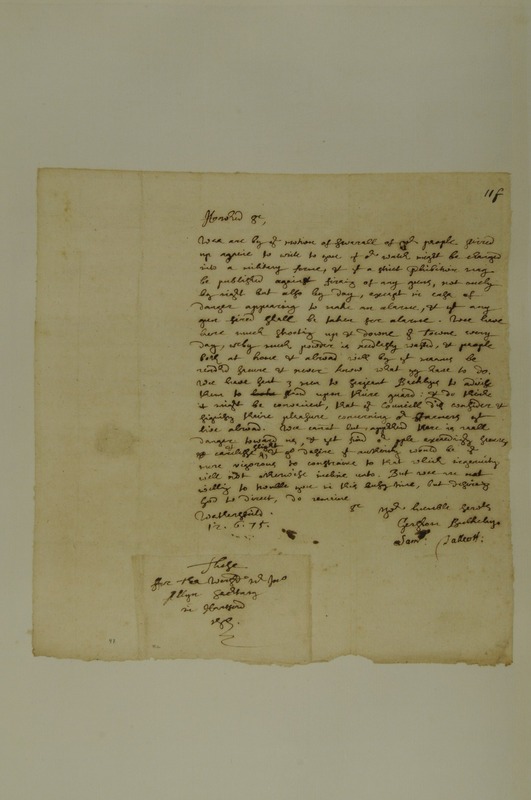 118
Honord Sr,
Wee are by ye motion of severall of ye people stired
up againe to write to you yt ye watch might be changed
into a military forme, & yt a strict prhibition may
be published against fireing of any guns, not onely
by night but also by day, except in case of
danger appearing to make an alarme, & yt any
gun fired shall be taken for alarme. Wee have
here much shooting up & downe ye towne every
day, wrby much powder is needlesly wasted, & people
both at home & abroad will by yt means be
rendrd secure & never know what yy have to do.
Wee have sent 3 men to Sergeant to advise
them to stand upon their guard: & do think
it might be convenient, that ye Councill did consider &
signify their pleasure concerning or farmers yt
live abroad. Wee cannot but apprhend there is reall
danger toward us, & yet find or pple exceeding secure,
& careless & slight, yt ye desire yt authority would be ye
more vigorous to constraine to that which ingenuity
will not otherwise incline unto. But wee are not
willing to trouble you in this busy time, but desiring
God to direct, do remaine
Sr yor humble servts
Wethersfeild.
12. 6. 75.
Gershom Bulkeley
Saml: Talcott:
These
For the Worshll mr Jno
Allyn Secretary
in Hartford